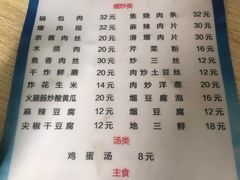 熘炒类
锅包肉 32元 焦烧肉条 32元
熘肉段 32元 麻辣肉片 30元
京酱肉丝 20元 滑熘肉片 30元
木须肉 20元 芹菜粉 16元
鱼香肉丝 30元 炒三丝 12元
干炸鲜蘑 20元 肉炒土豆丝 12元
炸花生米 14元 肉炒洋葱 20元
火腿肠炒酸黄瓜 20元 熘豆腐泡 16元
麻辣豆腐 12元 熘豆腐 12元
尖椒干豆腐 12元 地三鲜 18元
汤类
鸡蛋汤 8元
主食